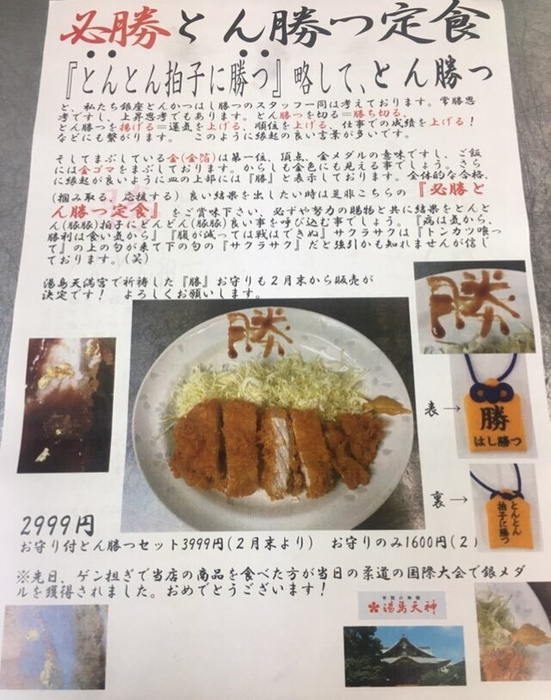 必勝とん勝つ定食
『とんとん拍子に勝つ』略して、とん勝つ
と、私たち銀座とんかつはし勝つのスタッフ一同は考えております。常勝思
考ですし、上昇思考でもあります。とん勝つを切る=勝ち切る、
とん勝つを揚げる=運気を上げる、順位を上げる、仕事での成績を上げる!
などにも繋がります。 このように縁起の良い言葉が多いです。
そしてまぶしている金(金箔)は第一位、頂点、金メダルの意味ですし、ご飯
には金ゴマをまぶしております。からしも金色にも見える事でしょう。さら
に縁起が良いように皿の上部には『勝』と表示しております。全体的な合格、
(掴み取る、応援する)良い結果を出したい時は是非こちらの『必勝と
ん勝つ定食』をご賞味下さい。必ずや努力の賜物と共に結果をとんと
ん(豚豚)拍子にどんどん(豚豚)良い事を呼び込む事でしょう。『病は気から、
勝利は食い気から』『腹が減っては戦はできぬ』サクラサクは『トンカツ喰っ
て』の上の句が来て下の句の『サクラサク』だと強引かも知れませんが信じ
ております。(笑)
湯島天満宮で祈祷した『勝』お守りも2月末から販売が
決定です! よろしくお願いします。
勝
勝
表→
勝
はし勝つ
裏→
とんとん
拍子に勝つ
2999円
お守り付とん勝つセット3999円(2月末より) お守りのみ1600円(2)
※先日、ゲン担ぎで当店の商品を食べた方が当日の柔道の国際大会で銀メダ
ルを獲得されました。おめでとうございます!
湯島天神